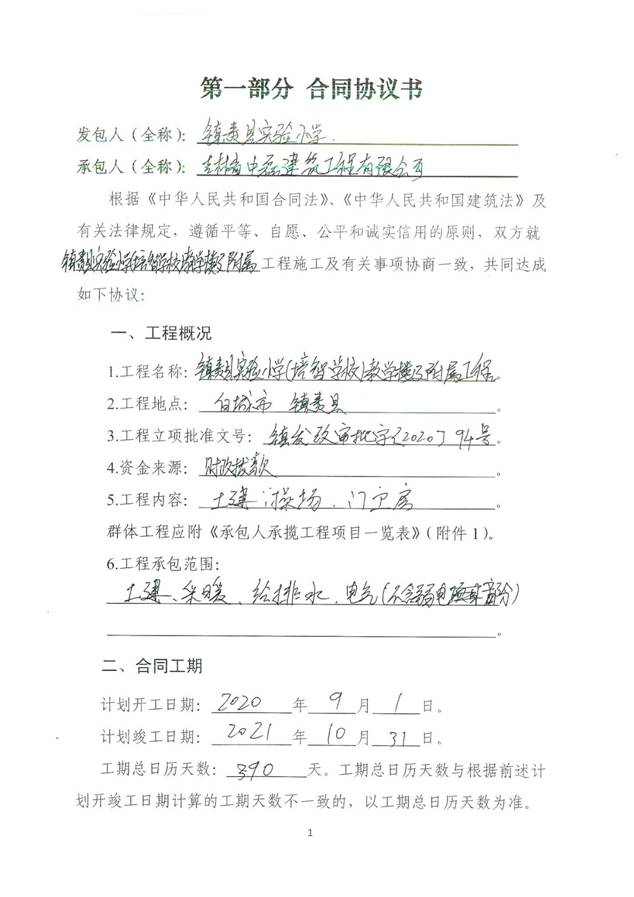 第一部分 合同协议书
发包人（全称）：镇赉县实验小学
承包人（全称）：吉林省中磊建筑工程有限公司
根据《中华人民共和国合同法》、《中华人民共和国建筑法》及
有关法律规定，遵循平等、自愿、公平和诚实信用的原则，双方就
镇赉县实验小学培智学校教学楼及附属工程施工及有关事项协商一致，共同达成
如下协议：
一、工程概况
1.工程名称：镇赉县实验小学(培智学校)教学楼及附属工程。
2.工程地点：白城市 镇赉县。
3.工程立项批准文号：镇发改审批字〔2020〕94号。
4.资金来源：财政拨款。
5.工程内容：土建、操场、门卫房。
群体工程应附《承包人承揽工程项目一览表》（附件 1）。
6.工程承包范围：
土建、采暖、给排水、电气(不含弱电
。
二、合同工期
计划开工日期：2020 年 9 月 1 日。
计划竣工日期：2021 年 10 月 31 日。
工期总日历天数：390 天。工期总日历天数与根据前述计
划开竣工日期计算的工期天数不一致的，以工期总日历天数为准。
1